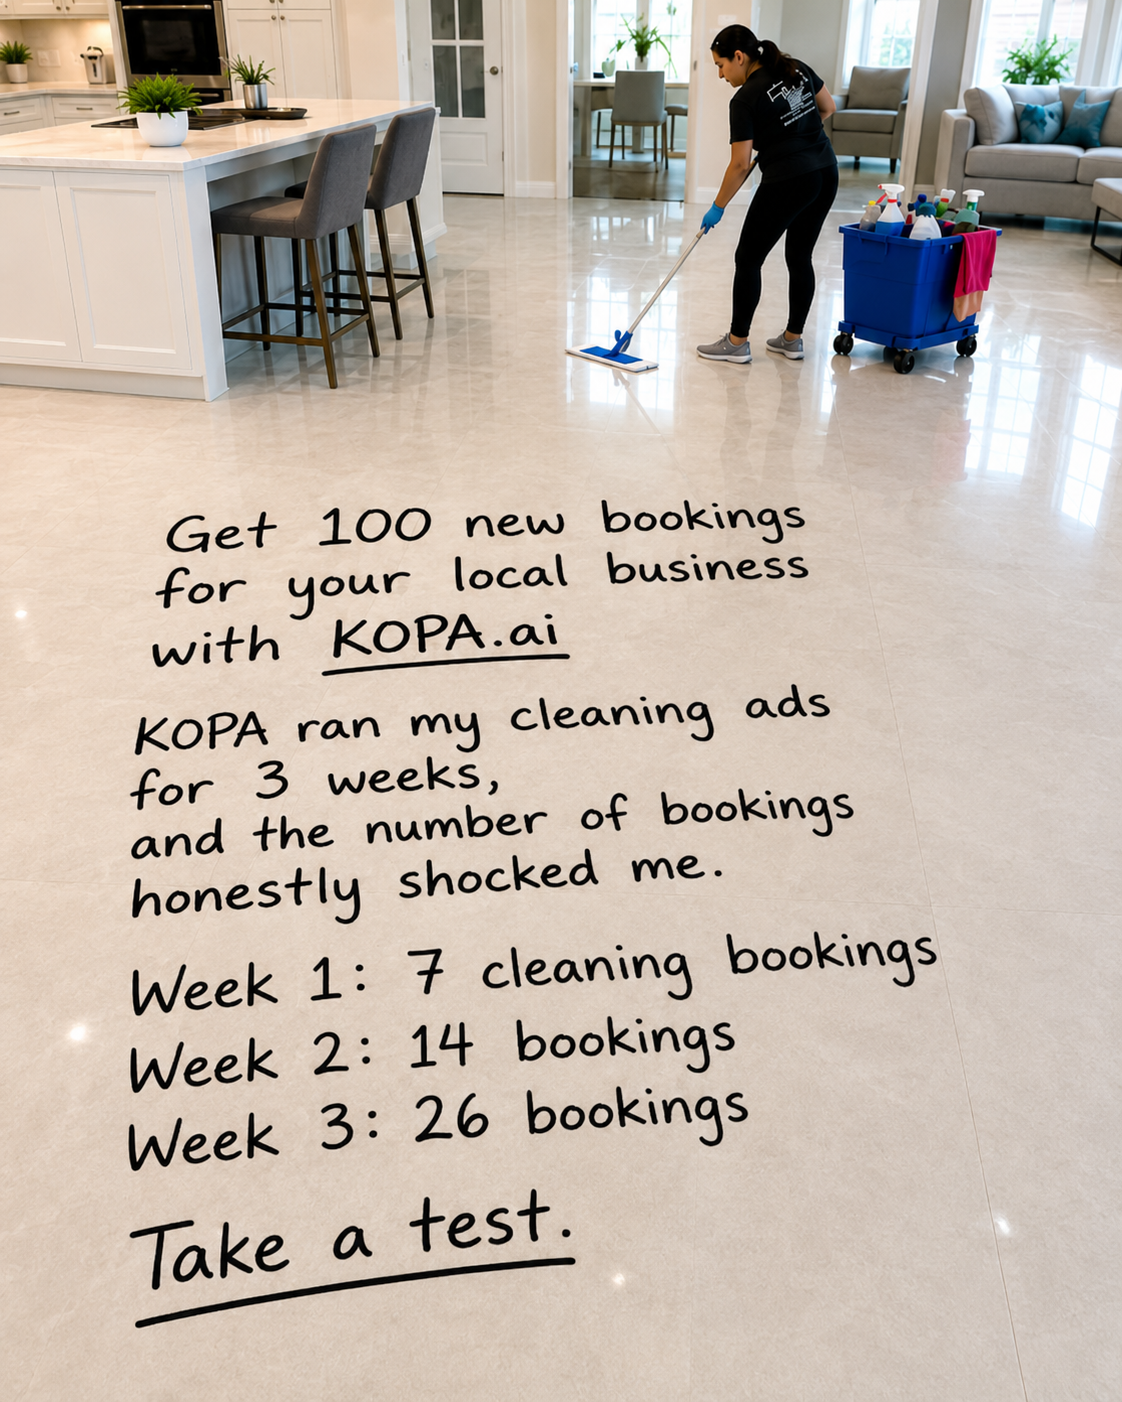 Get 100 new bookings
for your local business
with KOPA.ai
KOPA ran my cleaning ads
for 3 weeks,
and the number of bookings
honestly shocked me.
Week 1: 7 cleaning bookings
Week 2: 14 bookings
Week 3: 26 bookings
Take a test.